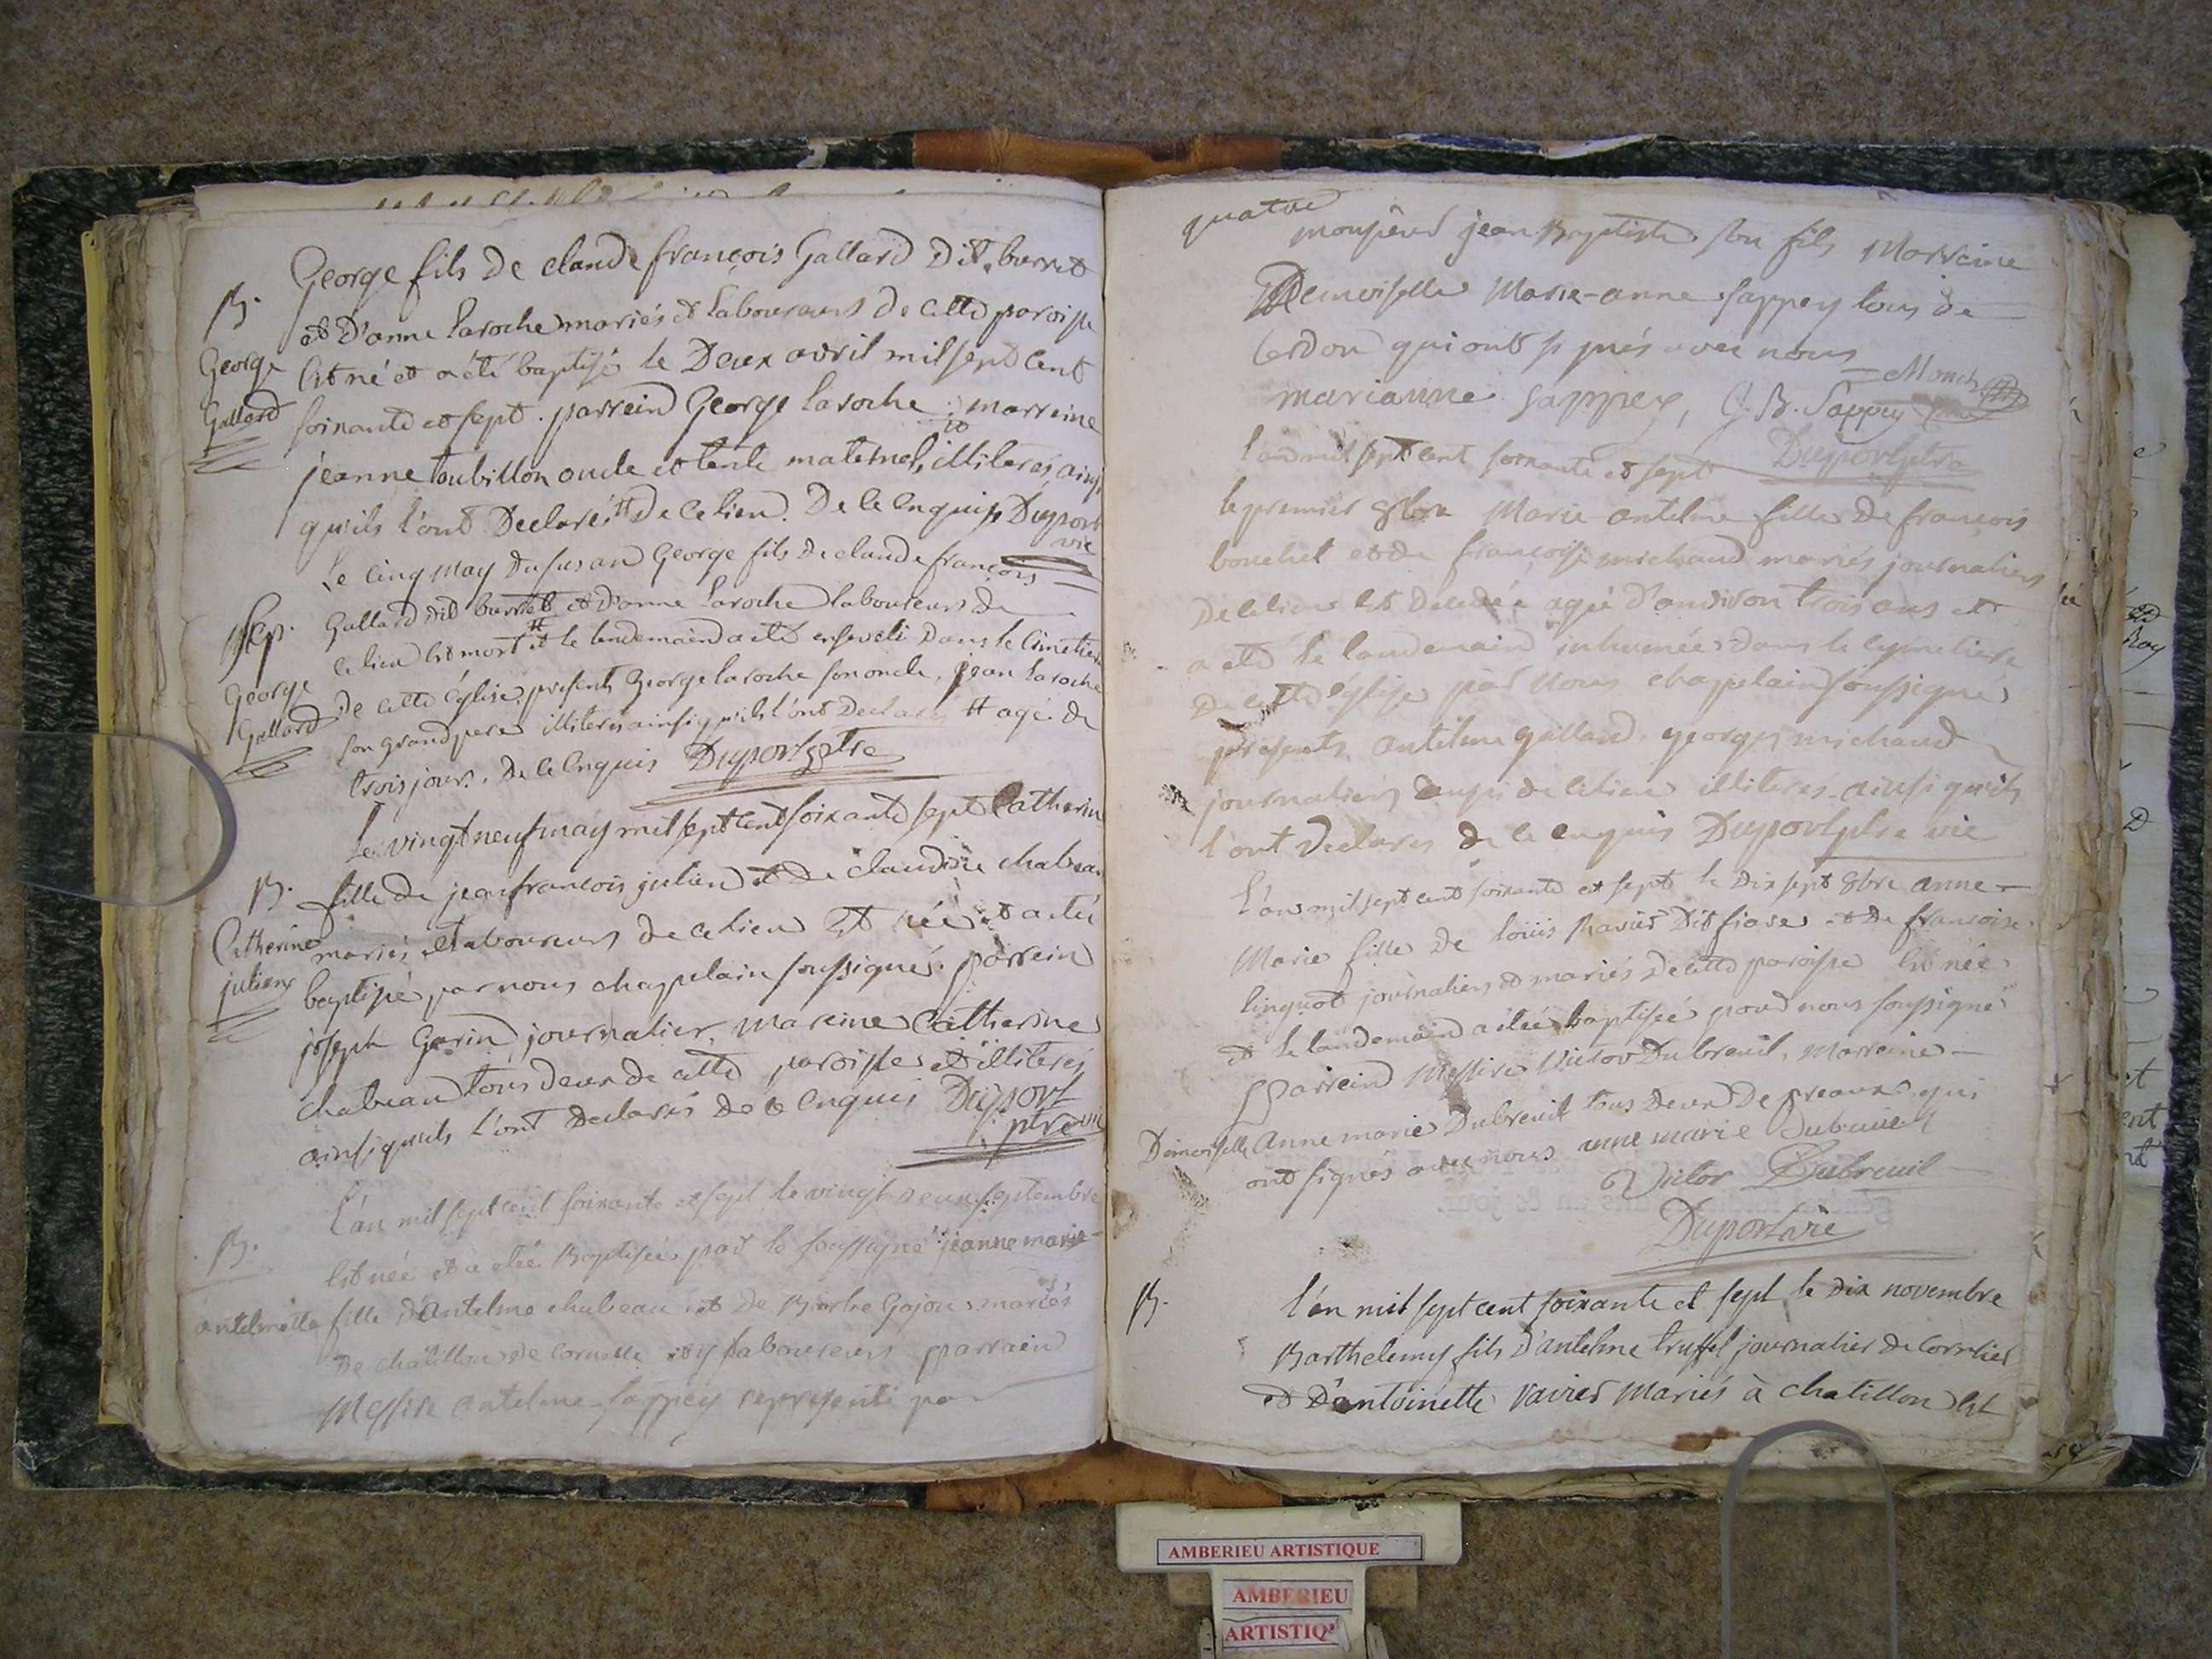 George fils De claude françois Gallard Dit burret
B. et D'anne Laroche mariés et Laboureurs De cette paroisse
George Est né et a été baptisé le Deux avril mil sept cent
Gallard soixante et sept. parrein George Laroche, marreine
jeanne toubillon oncle et tente maternel, illiterés ainsi
qu'ils l'ont Declaré, De ce lieu. De ce enquis Duport
vic
Le cinq May Du susan George fils De claude françois
Sep. Gallard dit burret et D'anne Laroche laboureurs De
ce lieu est mort # et le lendemain a été enseveli Dans le Cimetiere
George De cette église, presents George laroche son oncle, jean laroche
Gallard son grand pere illiterés ainsi qu'ils l'ont Declarés # agé de
trois jours. De ce enquis Duport ptre
Le vingt neuf may mil sept cent soixante sept Catherine
B. fille de jean francois julien et De claudine chabeau
Catherine mariés et laboureurs de ce lieu Est née et a été
julien baptisée par nous chapelain soussigné. parrein
joseph Garin journalier, Mareine Catherine
chabeau tous deux de cette paroisse et illiterés
ainsi qu'ils l'ont Declarés De ce Enquis Duport
ptre vic
L'an mil sept cent soixante et sept le vingt deux septembre
B. Est née et a eté Baptisée par le soussigné jeanne marie
antelmette fille D'antelme chabeau et De Barbe Gojon mariés
De chatillon de Cornelle et y laboureurs parrain
Messire antelme Sappey representé par
quatre
monsieur jean Baptiste son fils Marreine
Demoiselle Marie-anne Sappey tous de
Cerdon qui ont signés avec nous
marianne Sappey, J. B. Sappey
Duport ptre
L'an mil sept cent soixante et sept
le premier 8bre Marie antelme fille De françois
bouchet et de françoise michaud mariés journaliers
De ce lieu Est Decedée agée d'environ trois ans et
a eté le lendemain inhumée dans le cymetiere
De cette église par Nous chapelain soussigné
presents antelme gallard, georges michaud
journaliers aussi de ce lieu illiterés ainsi qu'ils
l'ont Declarés De ce enquis Duport ptre vic
L'an mil sept cent soixante et sept le Dix sept 8bre anne
Marie fille De loüis Ravier Dit fiare et De francoise
linquot journaliers et mariés De cette paroisse Est née
et le landemain a étée baptisée par nous soussigné
Parrein Messire Victor Dubreuil, Marreine
Demoiselle Anne marie Dubreuil tous Deux De preaux qui
ont signés avec nous anne marie Dubreuil
Victor Dubreuil
Duport ptre
B. L'an mil sept cent soixante et sept le Dix novembre
Barthelemy fils D'antelme truffet journalier de Corcelier
et D'antoinette Ravier Mariés à chatillon Est
AMBERIEU ARTISTIQUE
AMBERIEU
ARTISTIQ